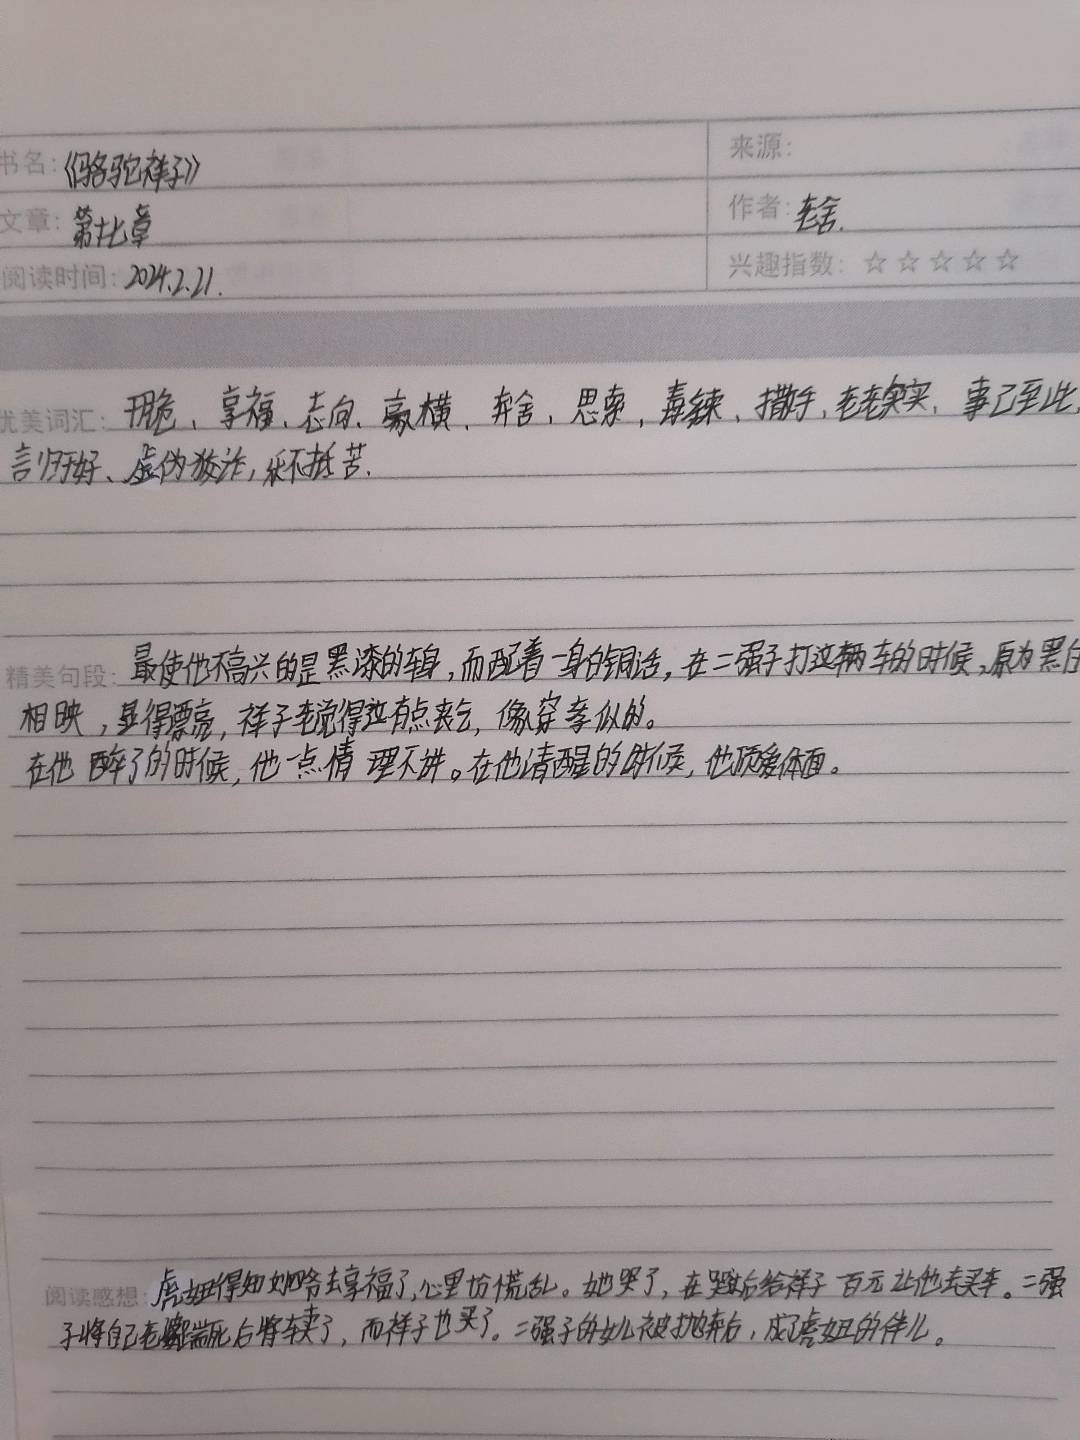 书名：《骆驼祥子》
来源：
文章：第十七章
作者：老舍.
阅读时间：2024.2.21.
兴趣指数：☆☆☆☆☆
优美词汇：享福、志向、豪横、奔舍、思索、毒辣、撒手、老老实实、事已至此、
言归于好、虚伪狡诈、乐不抵苦.
精美句段：最使他不高兴的是黑漆的车身，而配着一身白铜活，在二强子打这辆车的时候，原为黑白
相映，显得漂亮，祥子老觉得这有点丧气，像穿孝似的。
在他醉了的时候，他一点情理不讲。在他清醒的时候，他顶爱体面。
阅读感想：虎妞得知刘四爷去享福了，心里坊慌乱。她哭了，在哭始后给祥子百元让他去买车。二强
子将自己老婆踹死后将车卖了，而祥子也买了。二强子的女儿被抛弃后，成了虎妞的伴儿。